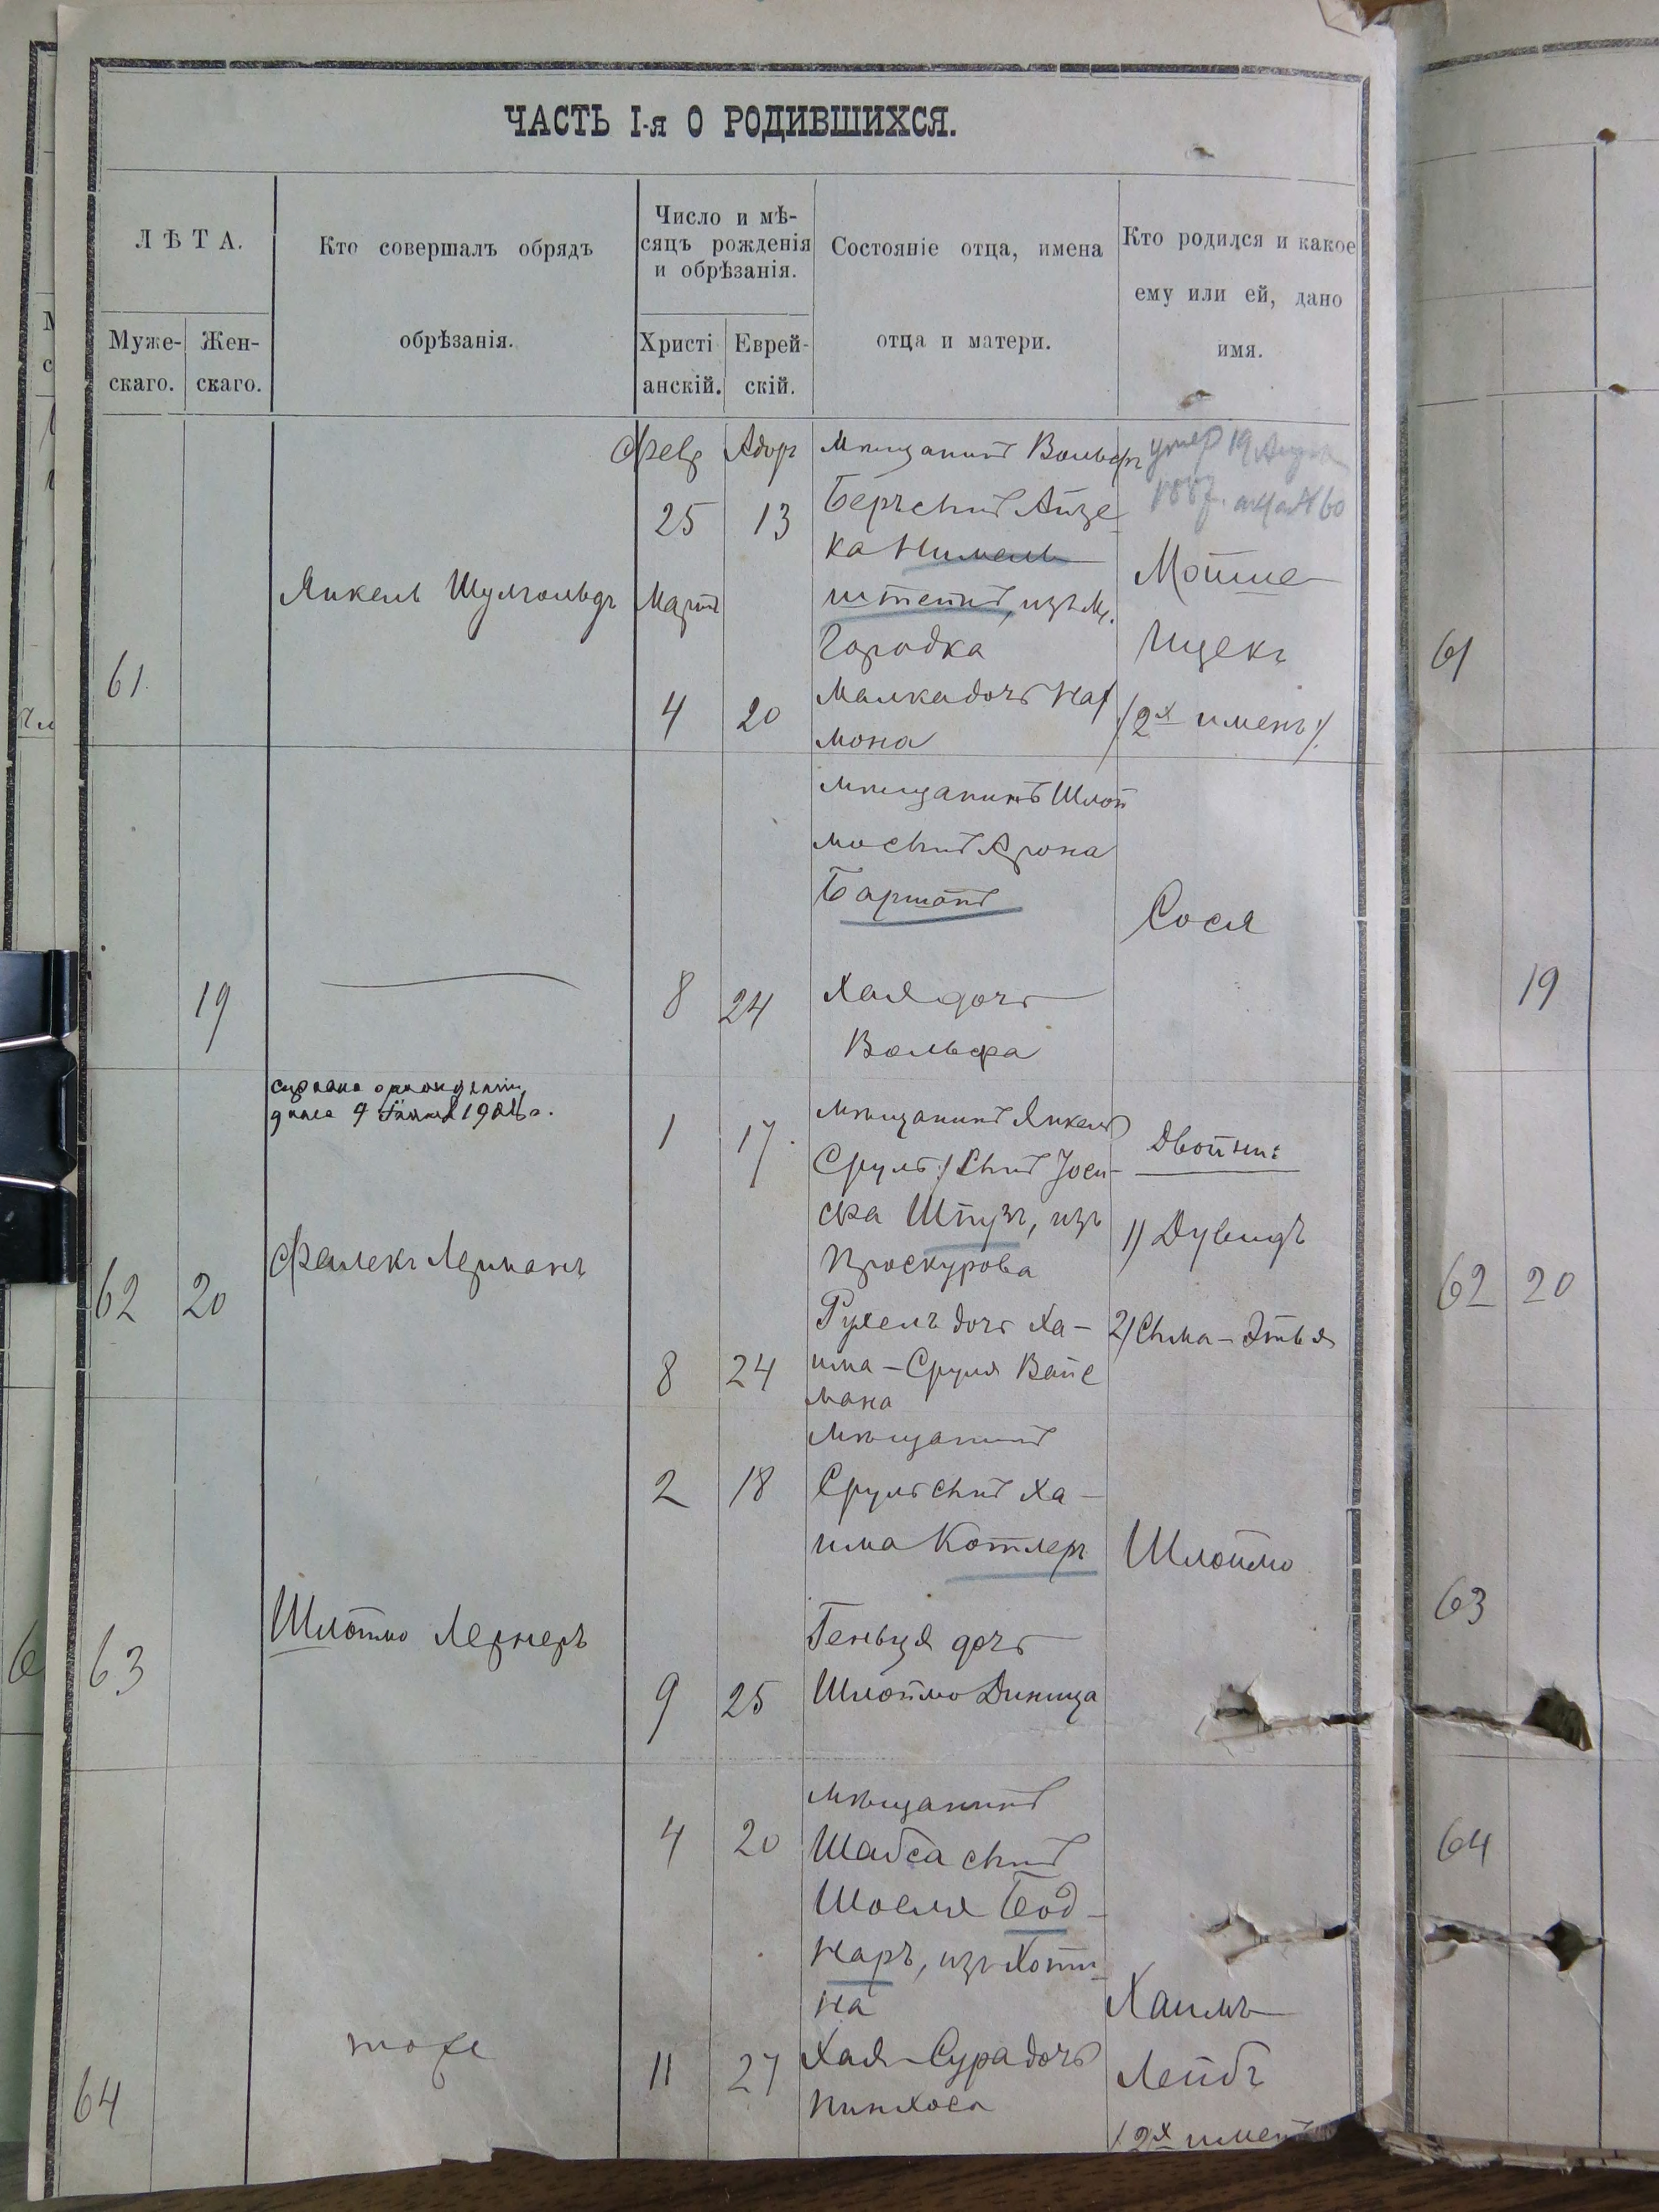 ЧАСТЬ I-я О РОДИВШИХСЯ.
ЛѢТА.
Муже-
скаго.
Жен-
скаго.
Кто совершалъ обрядъ
обрѣзанія.
Число и мѣ-
сяцъ рожденія
и обрѣзанія.
Христі
анскій.
Еврей-
скій.
Состояніе отца, имена
отца и матери.
Кто родился и какое
ему или ей, дано
имя.
61
Янкель
Февр
25
Мартъ
4
Адаръ
13
20
Мѣщанинъ Вольфъ
Беръ сынъ Айзе
ка Нимель
штейнъ, изъ м.
Городка
Малка дочь Нах
мона
умер 19
№ 60
Мошше
Ицекъ
/2х именъ/.
61
19
8
24
мѣщанинъ Шлой
мо сынъ Арона
Барштейнъ
Хая дочь
Вольфа
Сося
19
62
20
4 1904 г.
Фалекъ Лерманъ
1
8
17
24
мѣщанинъ Янкель
Сруль / сынъ Іоси
фа Шпузъ, изъ
Проскурова
Рухель дочь Ха-
има-Сруля Вайс
мана
Двойни:
1) Дувидъ
2) Сыма-Этья
62 20
63
Шлоймо Лернеръ
2
9
18
25
Мѣщанинъ
Сруль сынъ Ха-
има Котлеръ
Геньця дочь
Шлоймо
Шлоймо
63
64
тоже
4
11
20
27
мѣщанинъ
Шабса сынъ
Шоеля Бод-
наръ, изъ Хоти-
на
Хая-Сура дочь
Пинхоса
Хаимъ
Лейбъ
/2х именъ
64